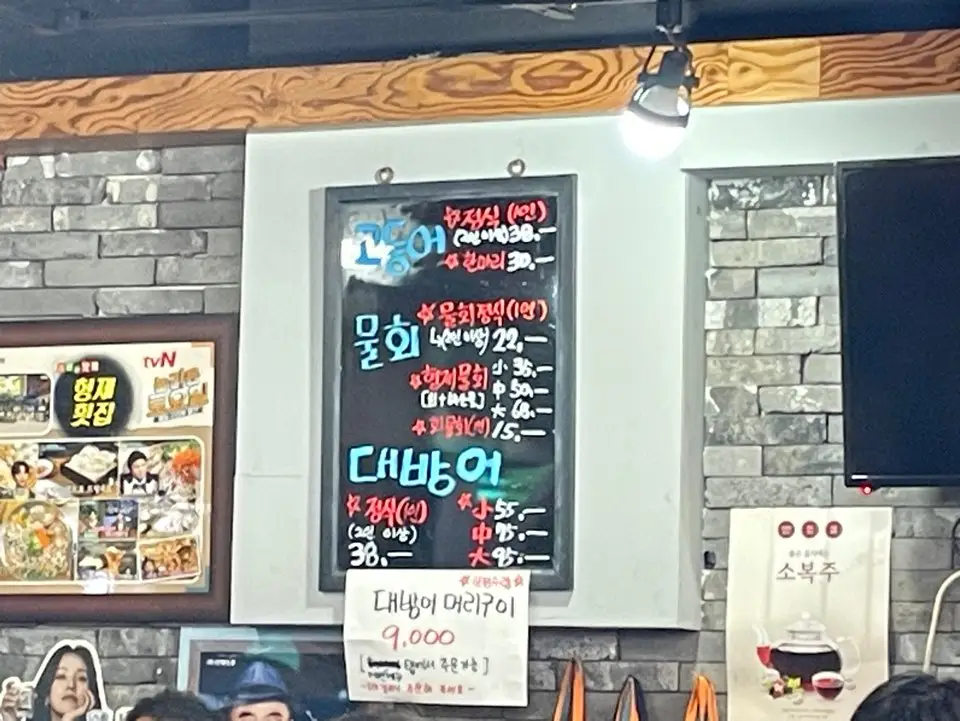 고등어
☆정식 (1인)
(2인 이상) 38.—
☆한마리 30.—
물회
☆물회정식(1인)
↳(2인 이상) 22.—
☆형제물회
小 35.—
中 50.—
大 68.—
☆회물회(1인) 15.—
대방어
☆정식(1인)
(2인 이상)
38.—
☆小 55.—
中 75.—
大 95.—
대방어 머리구이
9,000
주문가능 ]
tvN
형제
횟집
소복주